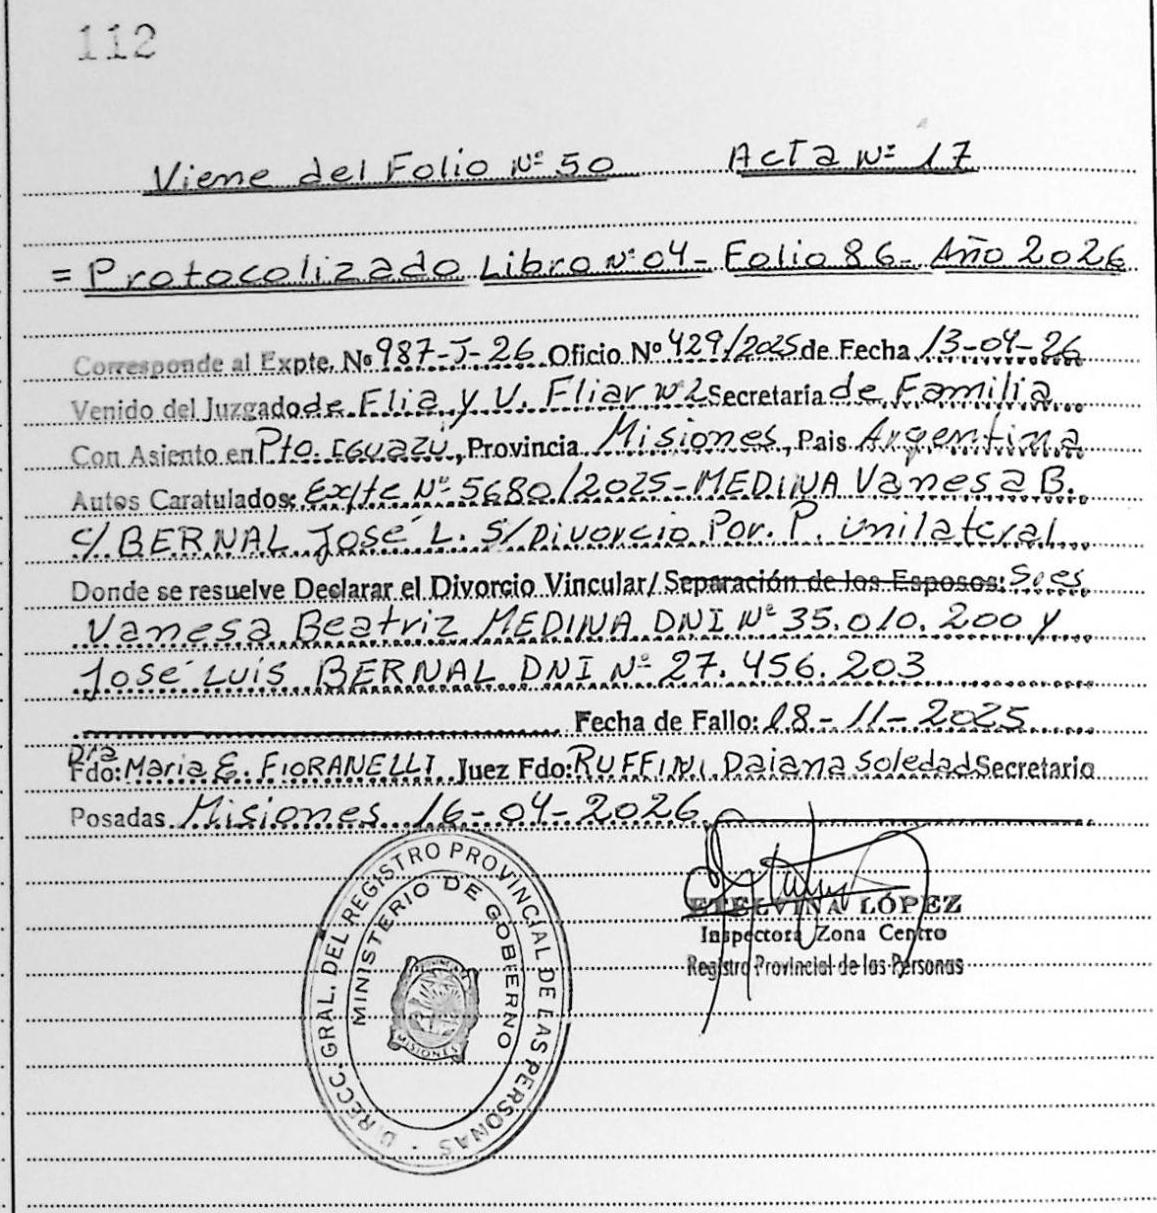 112
Viene del Folio Nº 50 Acta Nº 17
= Protocolizado Libro Nº 04 - Folio 86 - Año 2026
Corresponde al Expte. Nº 987-J-26 Oficio Nº 429/2025 de Fecha 13-04-26
Venido del Juzgado de Flia y V. Fliar Nº 2 Secretaria de Familia
Con Asiento en Pto. Iguazú, Provincia Misiones, Pais Argentina
Autos Caratulados: Expte Nº 5680/2025 - MEDINA Vanesa B.
c/ BERNAL José L. S/ Divorcio Por. P. Unilateral
Donde se resuelve Declarar el Divorcio Vincular/ Separación de los Esposos: Sres
Vanesa Beatriz MEDINA DNI Nº 35.010.200 y
José Luis BERNAL DNI Nº 27.456.203
Fecha de Fallo: 18-11-2025
Dra
Fdo: Maria E. FIORANELLI Juez Fdo: RUFFINI, Daiana Soledad Secretario
Posadas Misiones 16-04-2026
ETELVINA LÓPEZ
Inspectora Zona Centro
Registro Provincial de las Personas
DIRECC. GRAL. DEL REGISTRO PROVINCIAL DE LAS PERSONAS
MINISTERIO DE GOBIERNO
PROVINCIA
MISIONES